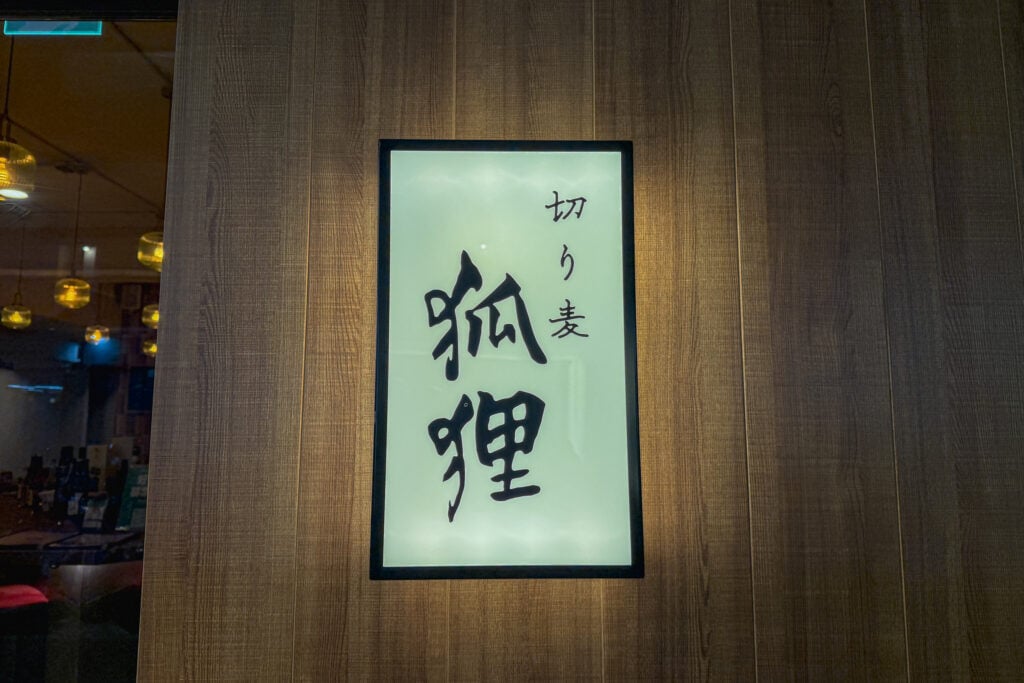 切り麦
狐狸